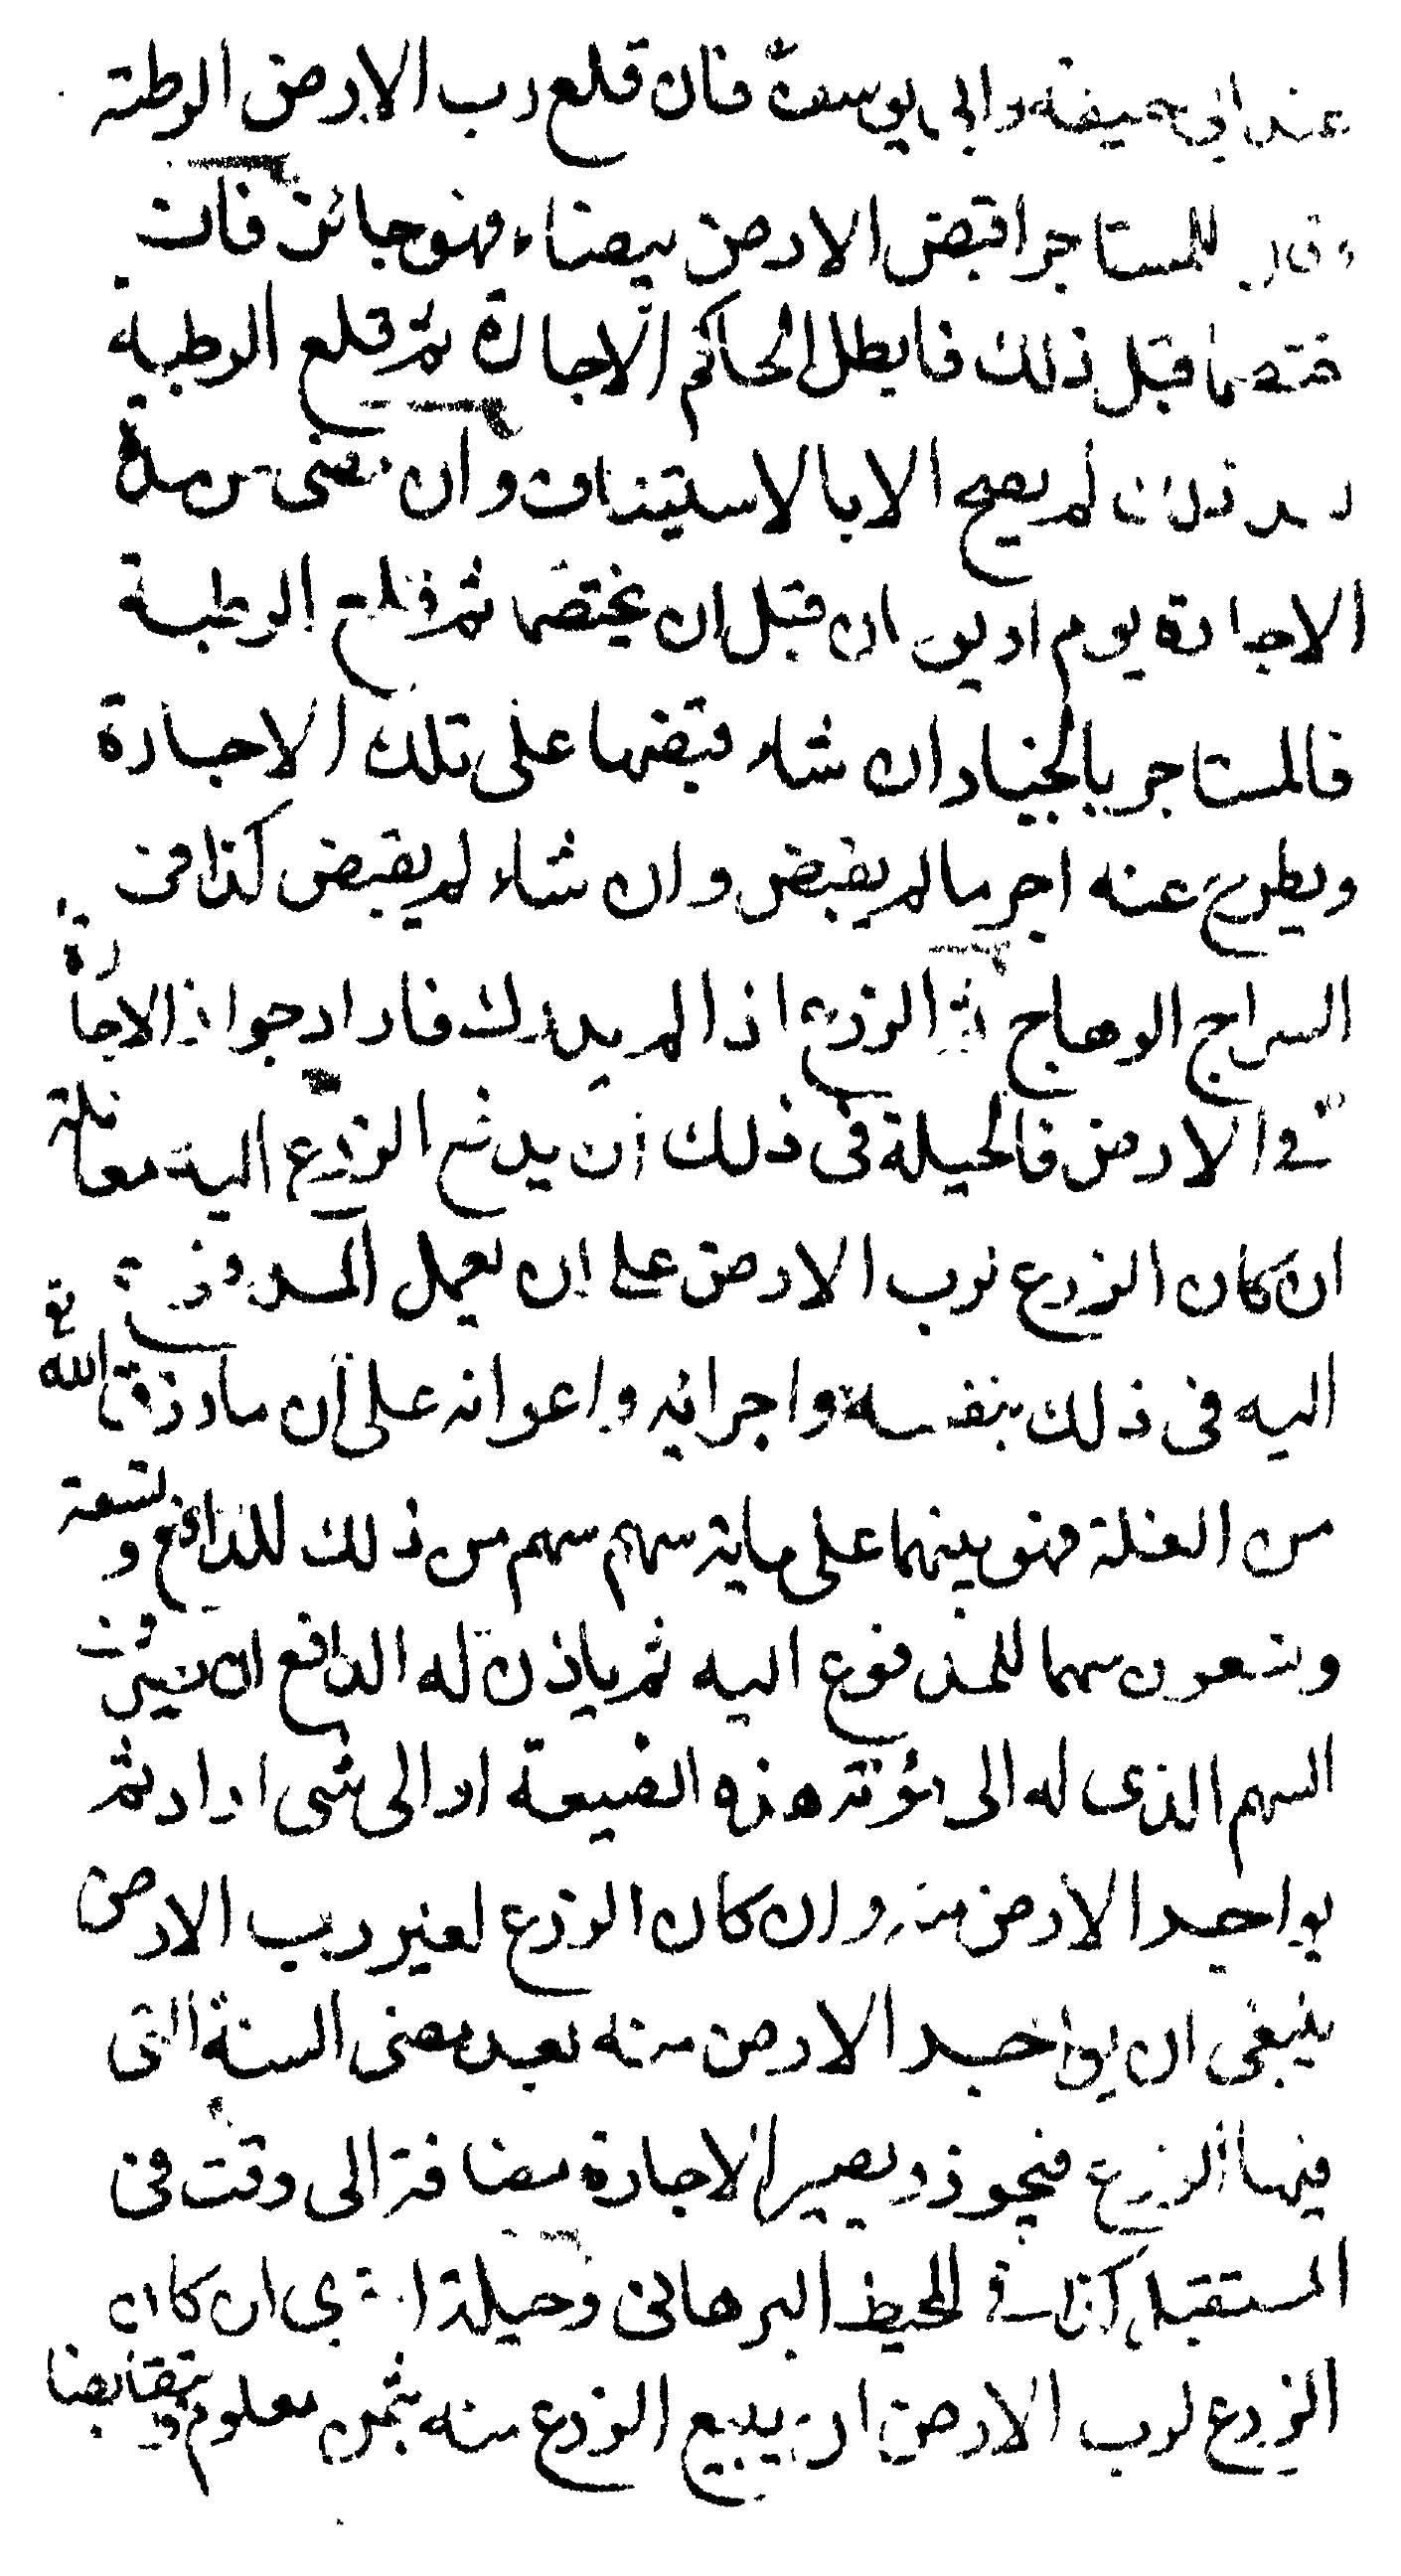 عند ابى حنيفة وابى يوسف فان قلع رب الارض الرطبة
وقال للمستاجر اقبض الارض بيضاء فهو جائز فان
ختصما قبل ذلك فابطل الحاكم الاجارة ثم قلع الرطبة
بعد ذلك لم يصح الا بالاستيناف وان مضى من مدة
الاجارة يوم او يومان قبل ان يختصما ثم قلع الرطبة
فالمستاجر بالخيار ان شاء قبضها على تلك الاجارة
ويطرح عنه اجر ما لم يقبض وان شاء لم يقبض كذا فى
السراج الوهاج ثم الزرع اذا لم يدرك فاراد جواز الاجارة
فى الارض فالحيلة فى ذلك ان يدفع الزرع اليه معاملة
ان كان الزرع لرب الارض على ان يعمل المدفوع
اليه فى ذلك بنفسه واجرائه واعوانه على ان ما رزق الله تع
من الغلة فهو بينهما على ماية سهم سهم من ذلك للدافع وتسعة
وتسعون سهما للمدفوع اليه ثم ياذن له الدافع ان يصرف
السهم الذى له الى مؤنة هذه الضيعة او الى شى اراد ثم
يواجر الارض منه وان كان الزرع لغير رب الارض
ينبغى ان يواجر الارض منه بعد مضى السنة التى
فيها الزرع فيجوز ويصير الاجارة مضافة الى وقت فى
المستقبل كذا فى المحيط البرهانى وحيلة اخرى ان كان
الزرع لرب الارض ان يبيع الزرع منه بثمن معلوم ويتقابضا